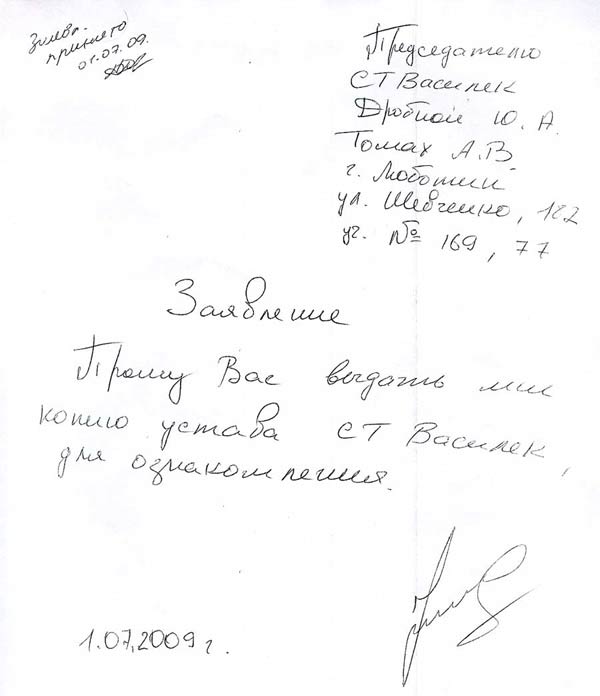 принято
01.07.09.
Председателю
СТ Василек
Дробной Ю. А.
Томах А.В
г. Люботин
ул. Шевченко, 122
уч. № 169, 77
Заявление
Прошу Вас выдать мне
копию устава СТ Василек,
для ознакомления.
1.07.2009 г.